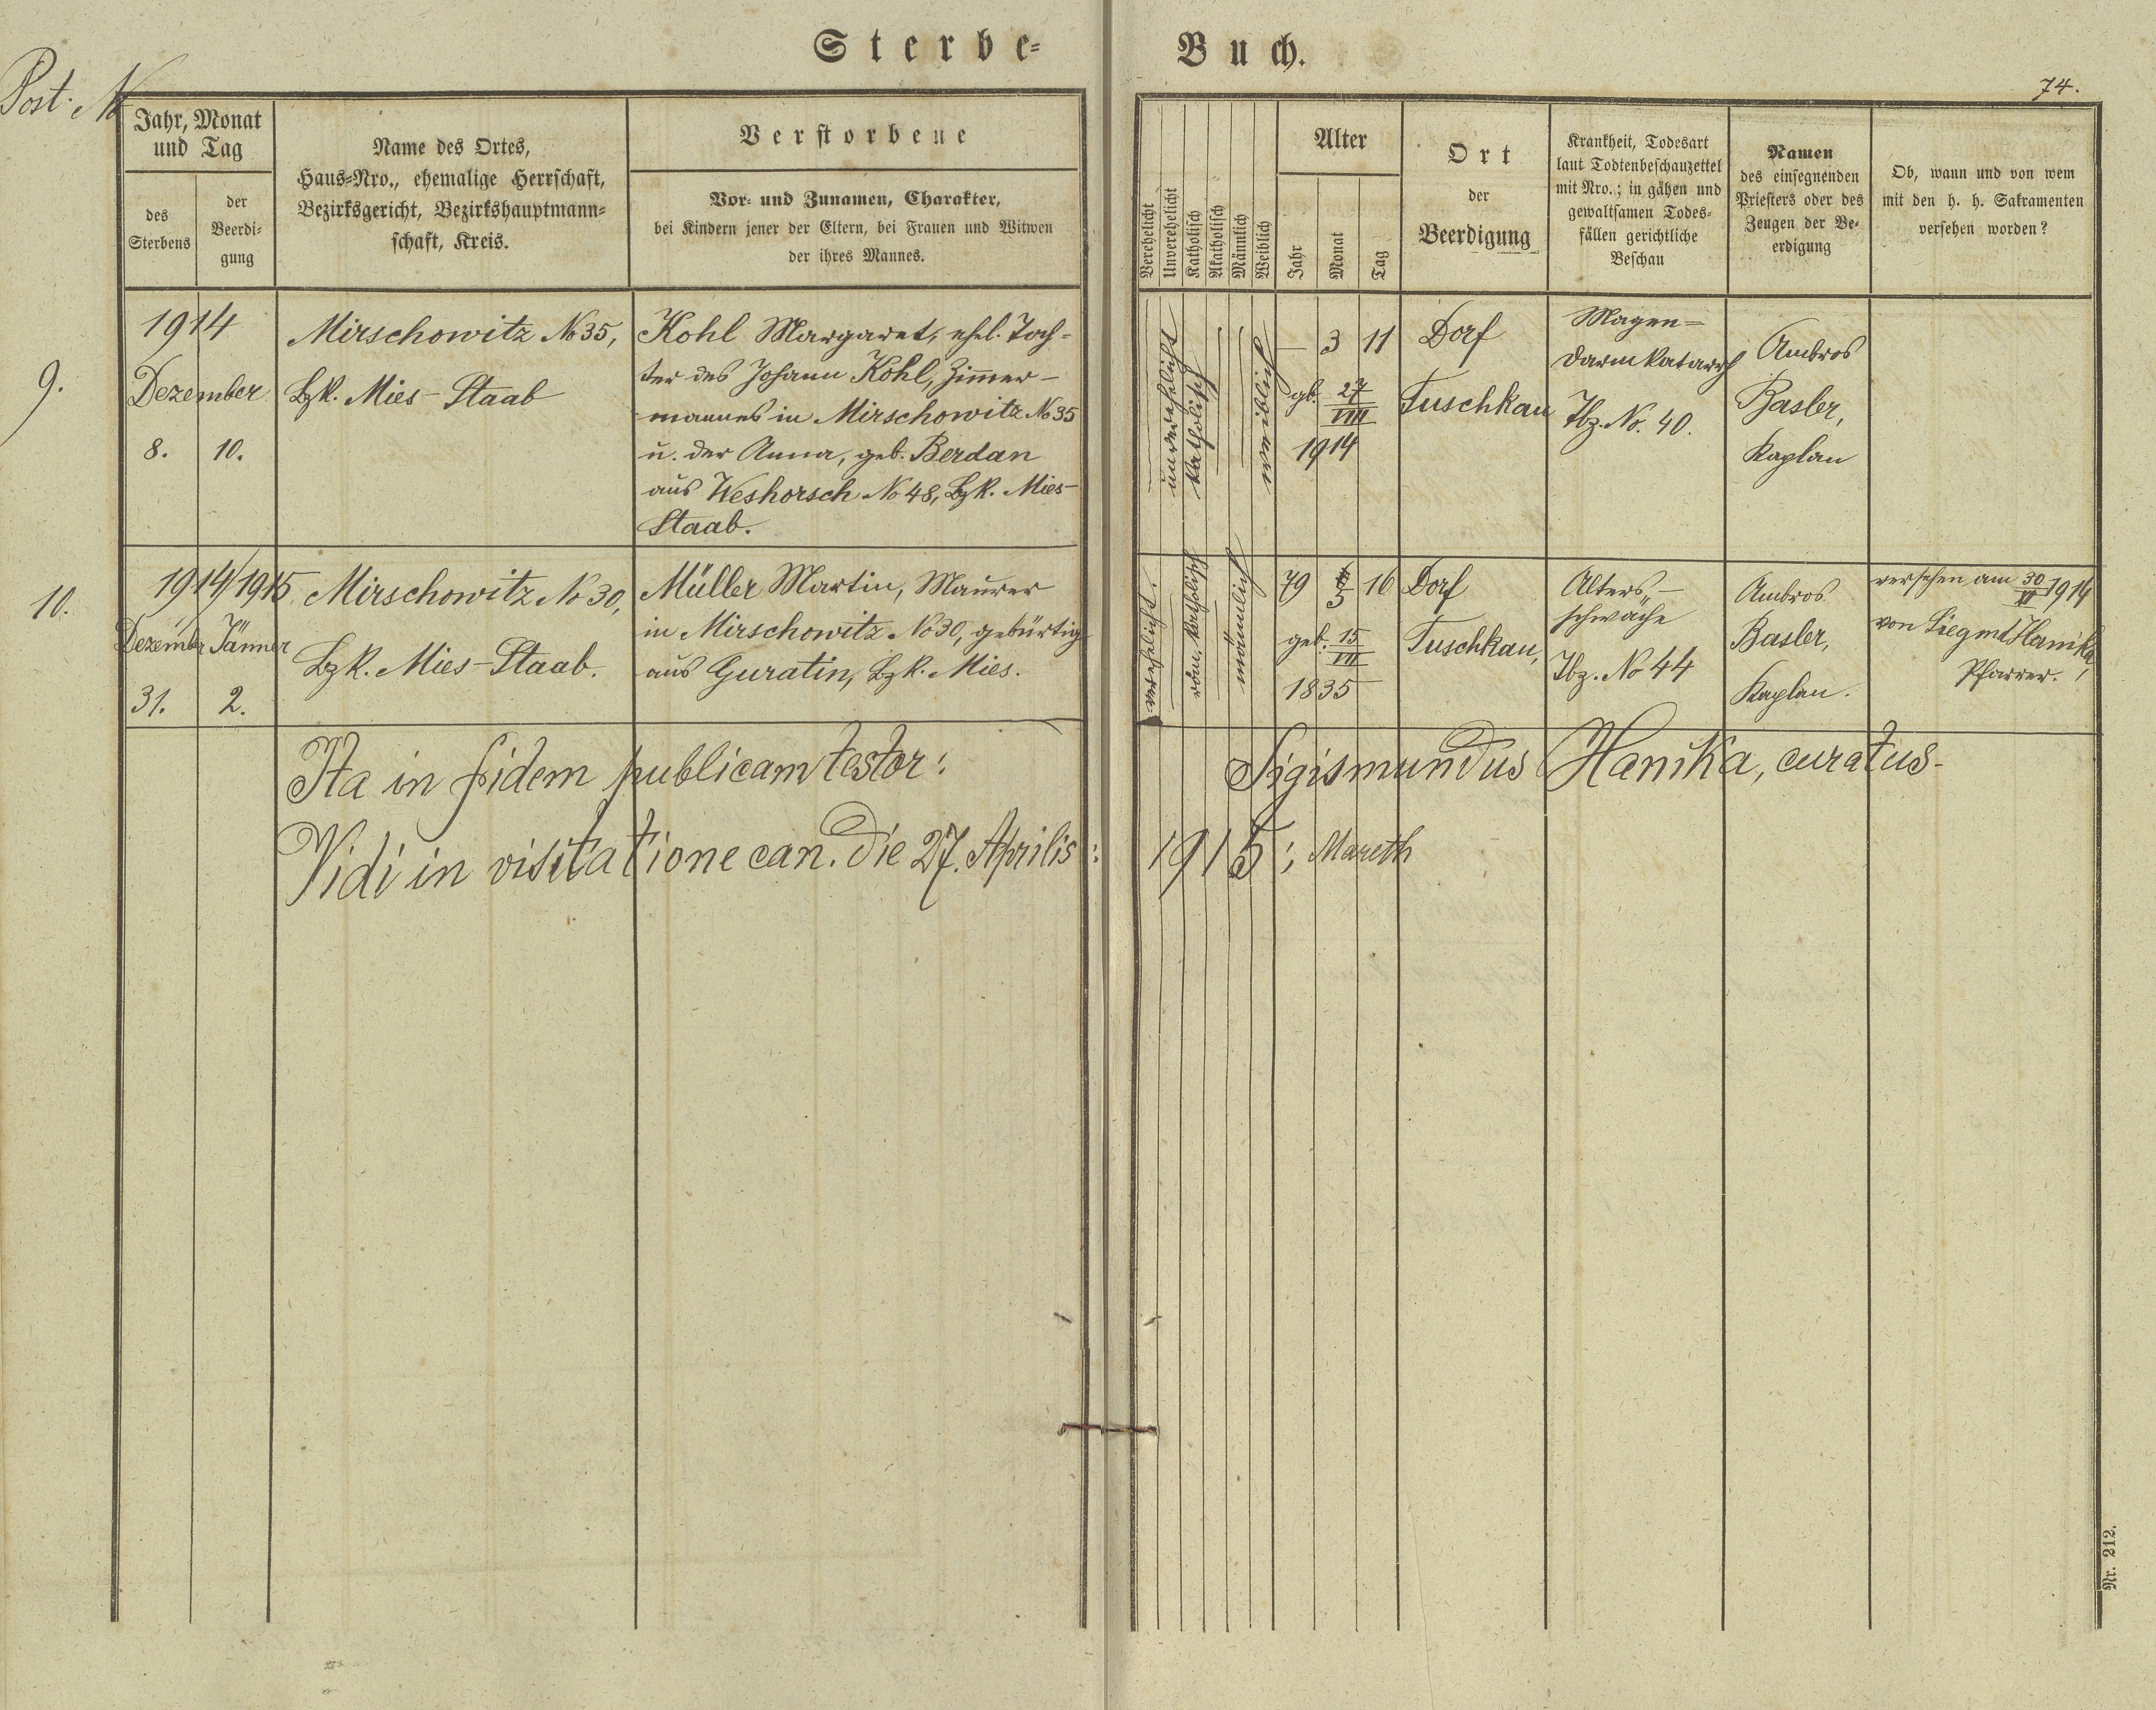 Sterbe-
Buch.
74.
Post. No
Jahr, Monat
und Tag
des
Sterbens
der
Beerdi-
gung
Name des Ortes,
Haus-Nro., ehemalige Herrschaft,
Bezirksgericht, Bezirkshauptmann-
schaft, Kreis.
Verstorbene
Vor- und Zunamen, Charakter,
bei Kindern jener der Eltern, bei Frauen und Witwen
der ihres Mannes.
Verehelicht
Unverehelicht
Katholisch
Akatholisch
Männlich
Weiblich
Alter
Jahr
Monat
Tag
Ort
der
Beerdigung
Krankheit, Todesart
laut Todtenbeschauzettel
mit Nro.; in gähen und
gewaltsamen Todes-
fällen gerichtliche
Beschau
Namen
des einsegnenden
Priesters oder des
Zeugen der Be-
erdigung
Ob, wann und von wem
mit den h. h. Sakramenten
versehen worden?
9.
1914
Dezember
8. 10.
Mirschowitz No 35,
Bzk. Mies-Staab
Kohl Margaret, ehel. Toch-
ter des Johann Kohl, Zimmer-
mannes in Mirschowitz No 35
u. der Anna, geb. Berdan
aus Weshorsch No 48, Bzk. Mies-
Staab.
unverehelicht
katholisch
weiblich
— 3 11
gb. 27/VIII
1914
Dorf
Tuschkau
Magen-
darmkatarrh
Tbz. No. 40.
Ambros
Basler,
Kaplan
10.
1914/1915
Dezember Jänner
31. 2.
Mirschowitz No 30,
Bzk. Mies-Staab.
Müller Martin, Maurer
in Mirschowitz No 30, gebürtig
aus Guratin, Bzk. Mies.
verehelicht.
röm. katholisch
männlich
79 5 16
geb. 15/VII
1835
Dorf
Tuschkau,
Alters-
schwäche
Tbz. No 44
Ambros
Basler,
Kaplan.
versehen am 30/XI 1914
von Siegmd Hanika,
Pfarrer.
Ita in fidem publicam testor: Sigismundus Hanika, curatus.
Vidi in visitatione can. die 27. Aprilis: 1915; Mareth
Nr. 212.